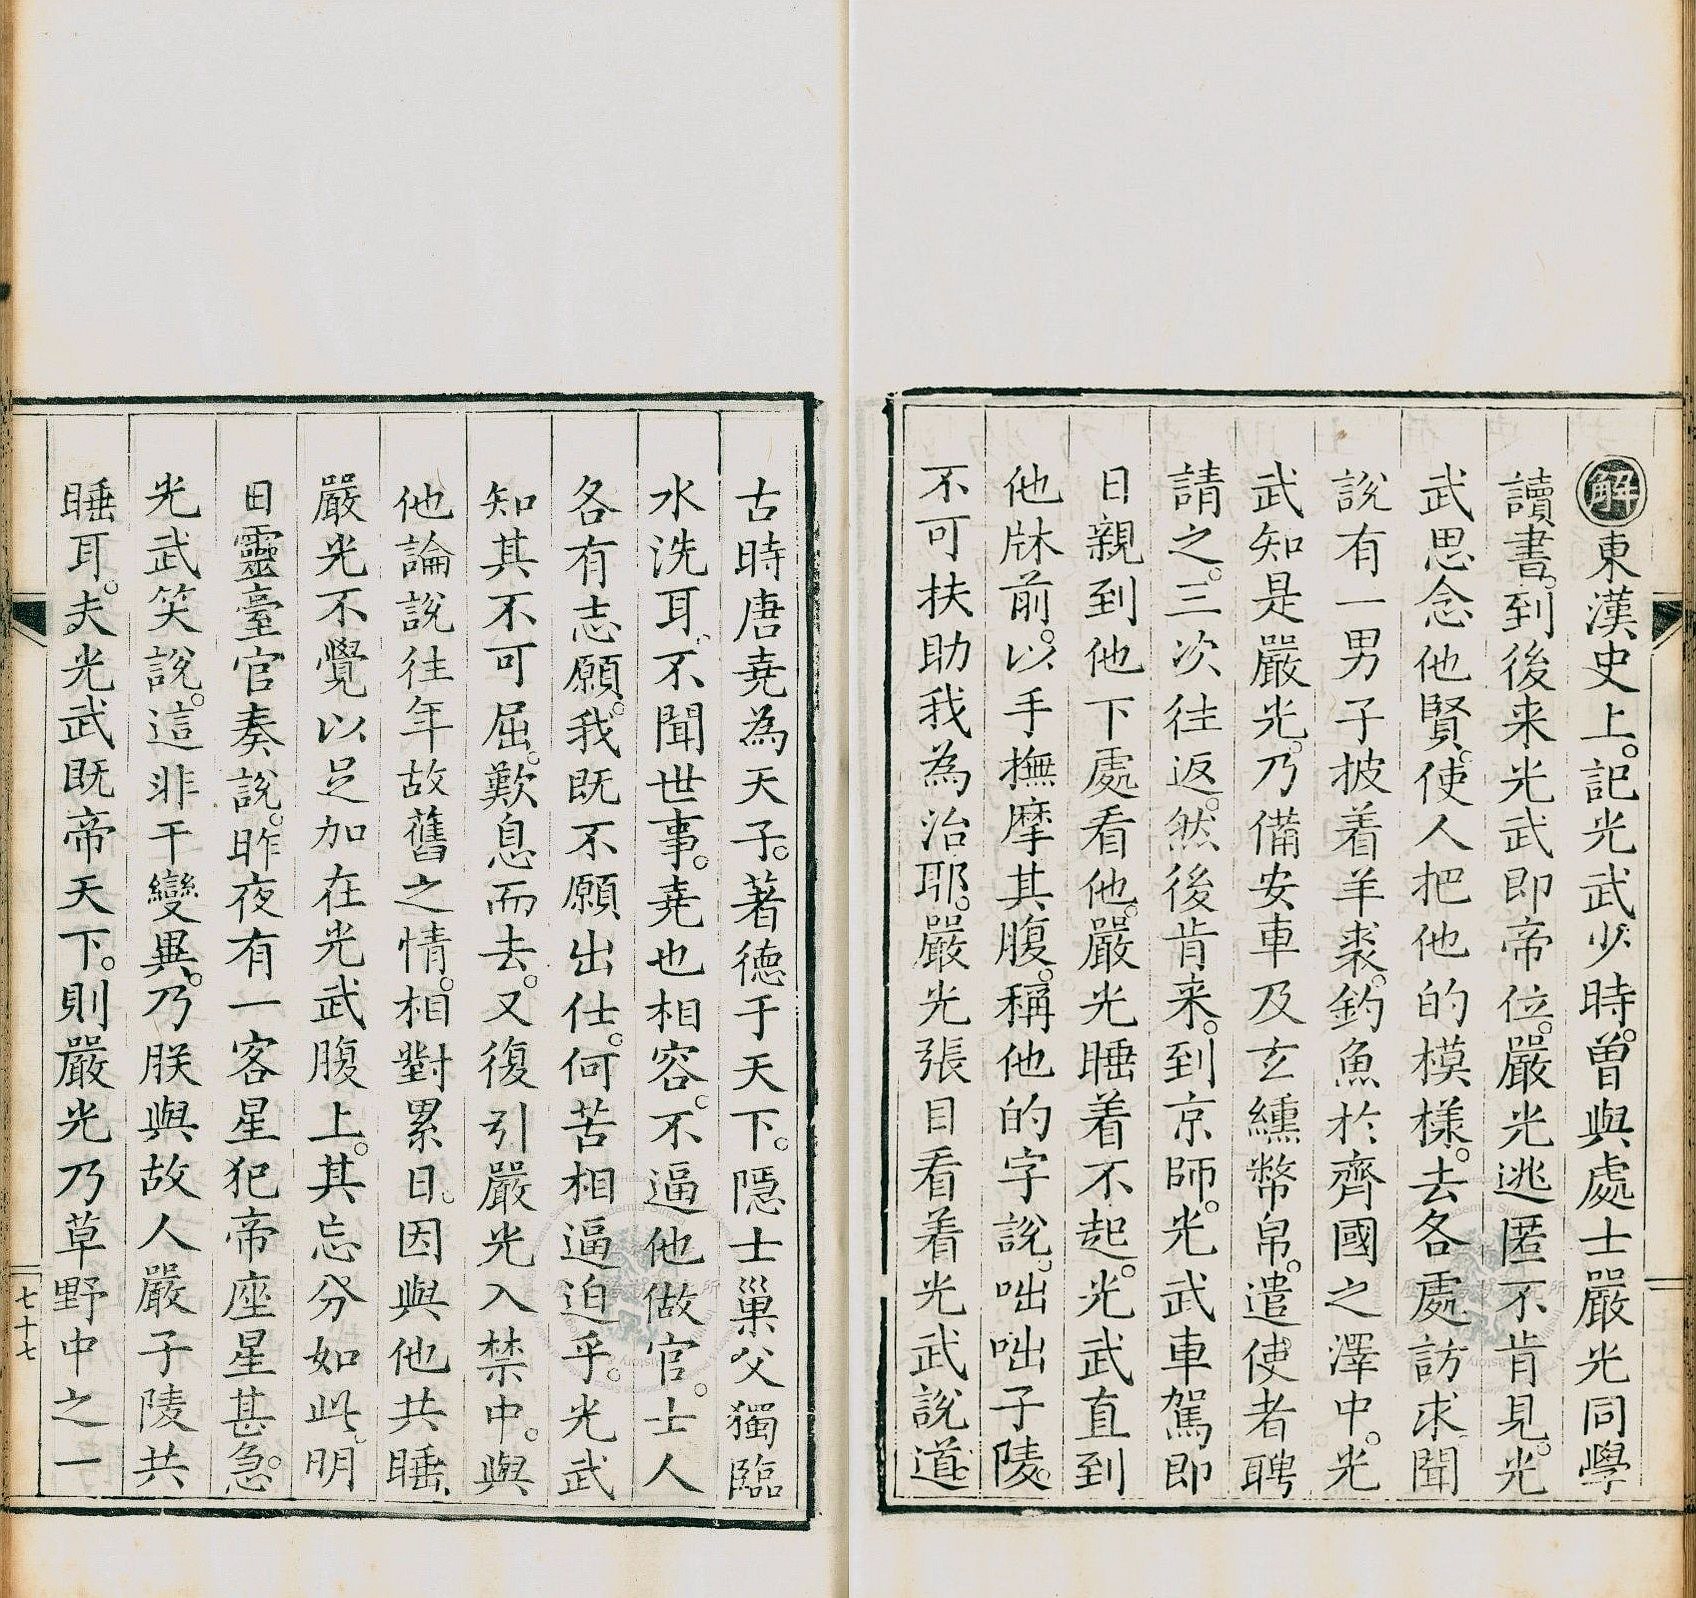 解東漢史上。記光武少時。曽與處士嚴光同學
讀書。到後来光武即帝位。嚴光逃匿不肯見。光
武思念他賢。使人把他的模様。去各處訪求聞
說有一男子披着羊裘。釣魚於齊國之澤中。光
武知是嚴光。乃備安車及玄纁幣帛。遣使者聘
請之。三次往返。然後肯来。到京師。光武車駕即
日親到他下處看他。嚴光睡着不起。光武直到
他牀前。以手撫摩其腹。稱他的字說。咄咄子陵。
不可扶助我為治耶。嚴光張目看着光武說道
古時唐堯為天子。著德于天下。隱士巢父獨臨
水洗耳、不聞世事。堯也相容。不逼他做官。士人
各有志願。我既不願出仕。何苦相逼迫乎。光武
知其不可屈。歎息而去。又復引嚴光入禁中。與
他論說往年故舊之情。相對累日。因與他共睡、
嚴光不覺以足加在光武腹上。其忘分如此。明
日靈臺官奏說。昨夜有一客星犯帝座星甚急。
光武笑說。這非干變異。乃朕與故人嚴子陵共
睡耳。夫光武既帝天下。則嚴光乃草野中之一
七十七